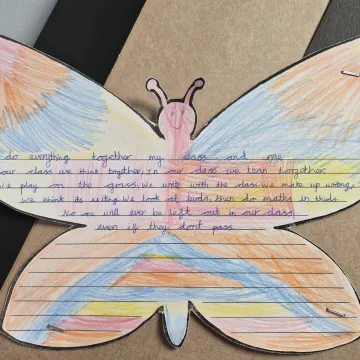 do everything together my class and me.
our class we think together, in our dass we learn together.
we play on the grass. We write with the class. we make up writing,
we think its exiting. We look at birds, then do maths in thirds.
No on will ever be left out in our class
even if they dont pass.